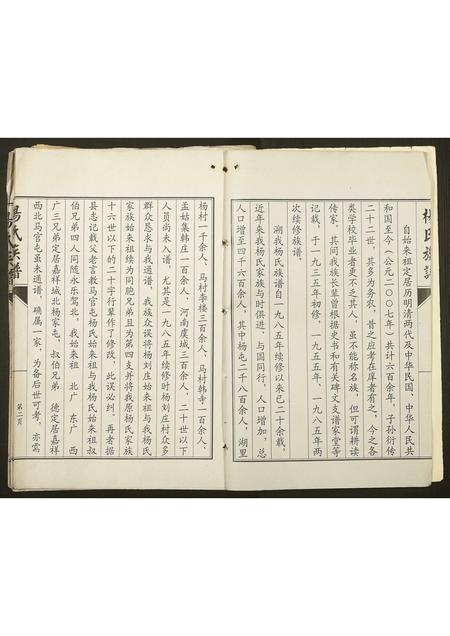 自始来祖定居历明清两代及中华民国、中华人民共
和国至今（公元二００七年）共计六百余年，子孙衍传
二十二世，其多为务农，昔之应考在庠者有之，今之各
类学校毕业者更不乏其人，虽不能称名族，但可谓耕读
传家，其间我族长辈曾根据史书和有关碑文支谱家堂等
记载，于一九三五年初修，一九五五年、一九八五年两
次续修族谱。
溯我杨氏族谱自一九八五年续修以来已二十余载，
近年来我杨氏家族与时俱进、与国同行，人口增加，总
人口增至四千六百余人，其中杨屯二千八百余人，湖里
杨村一千余人、马村李楼三百余人、马村韩寺一百余人、
孟姑集韩庄一百余人、河南虞城三百余人，二十世以下
人员尚未入谱，尤其是一九八五年续修时杨刘庄村众多
群众恳求与我通谱，我族众误将杨刘庄始来祖与我杨氏
家族始来祖续为同胞兄弟且为第四支并将我原杨氏家族
十六世以下的二十字行辈作了修改，此误必纠。再者据
县志记载父老言教马官屯杨氏始来祖与我杨氏始来祖叔
伯兄弟四人同随永乐驾北，我始来祖 北广 东广 西
广三兄弟定居嘉祥城北杨家屯，叔伯兄弟 德定居嘉祥
西北马官屯虽未通谱，确属一家，为备后世可考，亦需
杨氏族谱
第二页
杨氏族谱